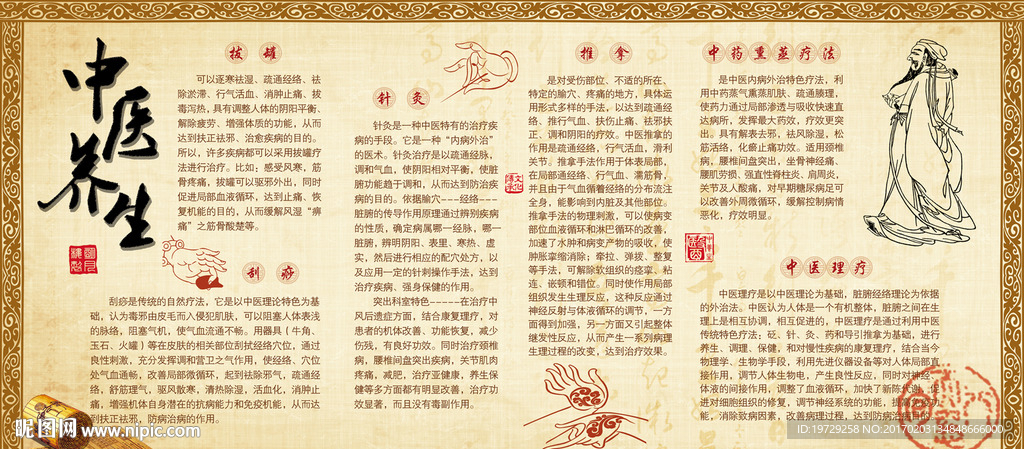 中医养生
拔罐
可以逐寒祛湿、疏通经络、祛
除淤滞、行气活血、消肿止痛、拔
毒泻热，具有调整人体的阴阳平衡、
解除疲劳、增强体质的功能，从而
达到扶正祛邪、治愈疾病的目的。
所以，许多疾病都可以采用拔罐疗
法进行治疗。比如：感受风寒，筋
骨疼痛，拔罐可以驱邪外出，同时
促进局部血液循环，达到止痛、恢
复机能的目的，从而缓解风湿“痹
痛”之筋骨酸楚等。
刮痧
刮痧是传统的自然疗法，它是以中医理论特色为基
础，认为毒邪由皮毛而入侵犯肌肤，可以阻塞人体表浅
的脉络，阻塞气机，使气血流通不畅。用器具（牛角、
玉石、火罐）等在皮肤的相关部位刮拭经络穴位，通过
良性刺激，充分发挥调和营卫之气作用，使经络、穴位
处气血通畅，改善局部微循环，起到祛除邪气，疏通经
络，舒筋理气，驱风散寒，清热除湿，活血化，消肿止
痛，增强机体自身潜在的抗病能力和免疫机能，从而达
到扶正祛邪，防病治病的作用。
针灸
针灸是一种中医特有的治疗疾
病的手段。它是一种“内病外治”
的医术。针灸治疗是以疏通经脉，
调和气血，使阴阳相对平衡，使脏
腑功能趋于调和，从而达到防治疾
病的目的。依据腧穴---经络---
脏腑的传导作用原理通过辨别疾病
的性质，确定病属哪一经脉，哪一
脏腑，辨明阴阳、表里、寒热、虚
实，然后进行相应的配穴处方，以
及应用一定的针刺操作手法，达到
治疗疾病、强身保健的作用。
突出科室特色-----在治疗中
风后遗症方面，结合康复理疗，对
患者的机体改善、功能恢复，减少
伤残，有良好功效。同时治疗颈椎
病，腰椎间盘突出疾病，关节肌肉
疼痛，减肥，治疗亚健康，养生保
健等多方面都有明显改善，治疗功
效显著，而且没有毒副作用。
推拿
是对受伤部位、不适的所在、
特定的腧穴、疼痛的地方，具体运
用形式多样的手法，以达到疏通经
络、推行气血、扶伤止痛、祛邪扶
正、调和阴阳的疗效。中医推拿的
作用是疏通经络，行气活血，滑利
关节。推拿手法作用于体表局部，
在局部通经络、行气血、濡筋骨，
并且由于气血循着经络的分布流注
全身，能影响到内脏及其他部位。
推拿手法的物理刺激，可以使病变
部位血液循环和淋巴循环的改善，
加速了水肿和病变产物的吸收，使
肿胀挛缩消除；牵拉、弹拔、整复
等手法，可解除软组织的痉挛、粘
连、嵌顿和错位。同时使作用局部
组织发生生理反应，这种反应通过
神经反射与体液循环的调节，一方
面得到加强，另一方面又引起整体
继发性反应，从而产生一系列病理
生理过程的改变，达到治疗效果。
中药熏蒸疗法
是中医内病外治特色疗法，利
用中药蒸气熏蒸肌肤、疏通腠理，
使药力通过局部渗透与吸收快速直
达病所，发挥最大药效，疗效更突
出。具有解表去邪，祛风除湿，松
筋活络，化瘀止痛功效。适用颈椎
病，腰椎间盘突出，坐骨神经痛、
腰肌劳损、强直性脊柱炎、肩周炎，
关节及人酸痛，对早期糖尿病足可
以改善外周微循环，缓解控制病情
恶化，疗效明显。
中医理疗
中医理疗是以中医理论为基础，脏腑经络理论为依据
的外治法。中医认为人体是一个有机整体，脏腑之间在生
理上是相互协调，相互促进的，中医理疗是通过利用中医
传统特色疗法；砭、针、灸、药和导引推拿为基础，进行
养生、调理、保健，和对慢性疾病的康复理疗，结合当今
物理学、生物学手段，利用先进仪器设备等对人体局部直
接作用，调节人体生物电，产生良性反应，同时对神经、
体液的间接作用，调整了血液循环，加快了新陈代谢，促
进对细胞组织的修复，调节神经系统的功能，提高免疫功
能，消除致病因素，改善病理过程，达到防病治病目的。
昵图网 www.nipic.com
ID:19729258 NO:20170203134848666000